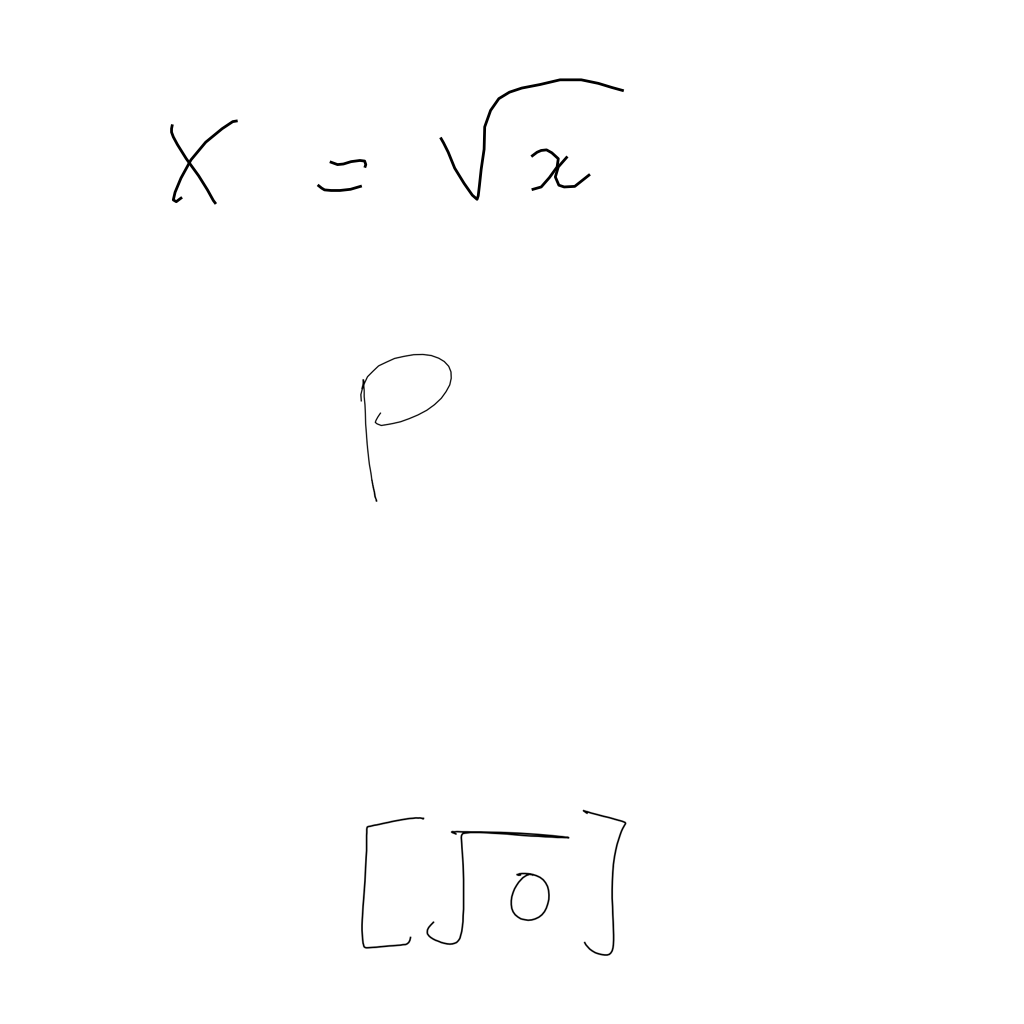 X = √x
P
[√0]